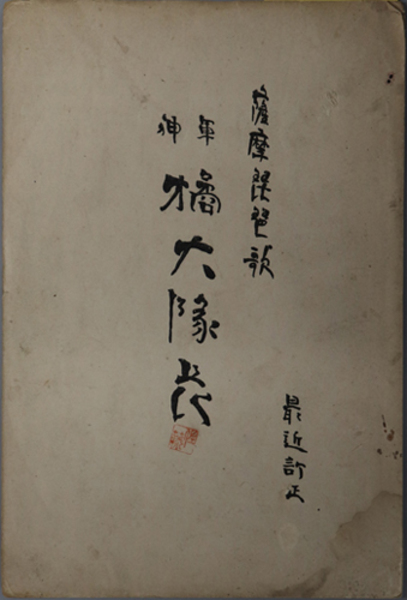 薩摩琵琶歌
軍神
橘大隊長
最近訂正